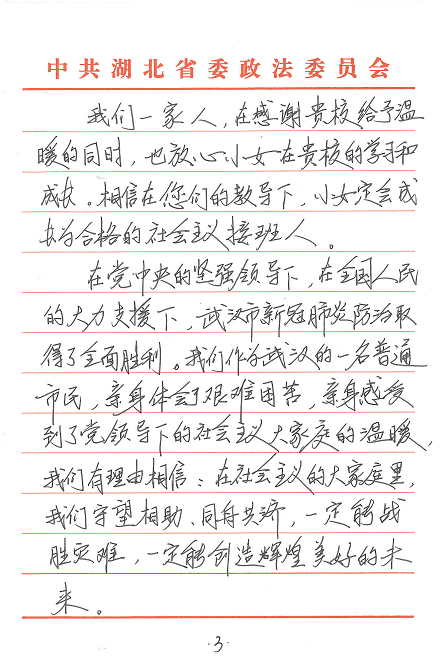 中共湖北省委政法委员会
我们一家人，在感谢贵校给予温
暖的同时，也放心小女在贵校的学习和
成长。相信在您们的教导下，小女定会成
长为合格的社会主义接班人。
在党中央的坚强领导下，在全国人民
的大力支援下，武汉市新冠肺炎防治取
得了全面胜利。我们作为武汉的一名普通
市民，亲身体会了艰难困苦，亲身感受
到了党领导下的社会主义大家庭的温暖，
我们有理由相信：在社会主义的大家庭里，
我们守望相助、同舟共济，一定能战
胜灾难，一定能创造辉煌美好的未
来。
·3·